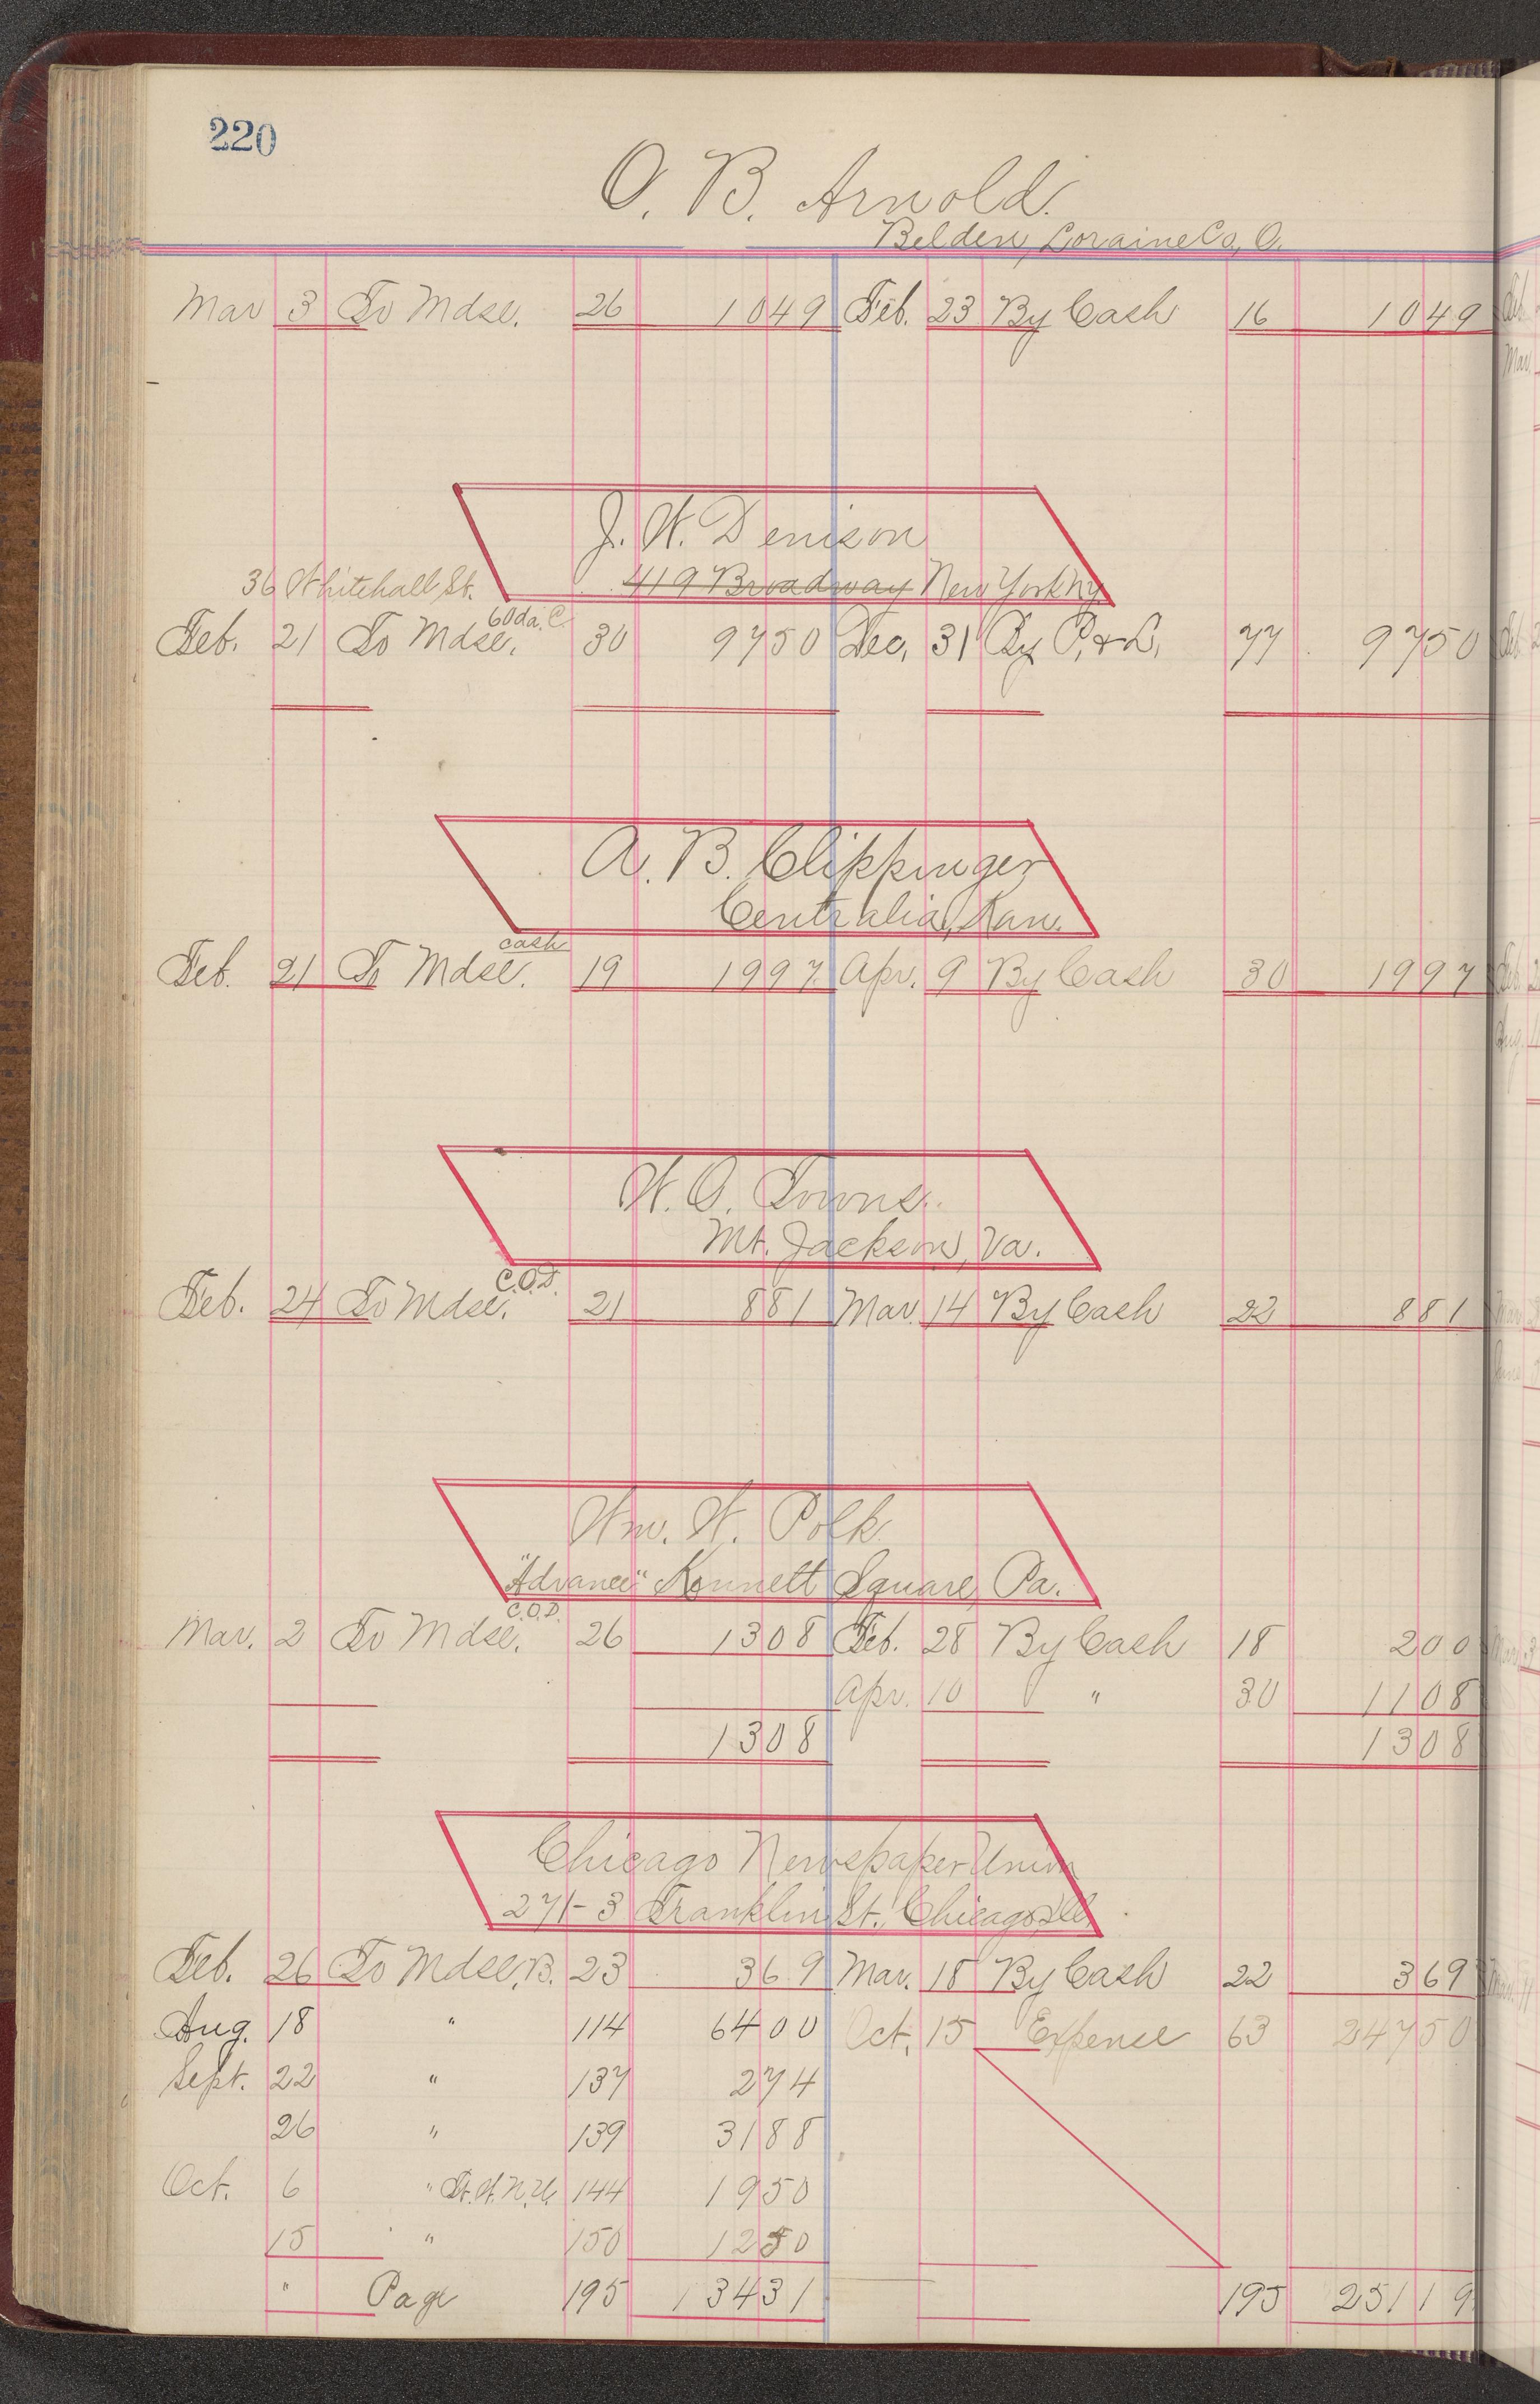 220
O. B. Arnold.
Belden, Loraine Co, O.
Mar 3 To Mdse. 26 1049 Feb. 23 By Cash 16 1049
J. W. Denison
36 Whitehall St. 419 Broadway New York Ny
60 da. C.
Feb. 21 To Mdse. 30 9750 Dec. 31 By P. & L. 77 9750
A. B. Clippinger
Centralia, Kan.
cash
Feb. 21 To Mdse. 19 1997 Apr. 9 By Cash 30 1997
W. O. Towns.
Mt. Jackson, Va.
C.O.D.
Feb. 24 To Mdse. 21 881 Mar. 14 By Cash 22 881
Wm. W. Polk
"Advance" Kennett Square, Pa.
C.O.D.
Mar. 2 To Mdse. 26 1308 Feb. 28 By Cash 18 200
Apr. 10 " 30 1108
1308 1308
Chicago Newspaper Union
271-3 Franklin St. Chicago, Ill.
Feb. 26 To Mdse. B. 23 369 Mar. 18 By Cash 22 369
Aug. 18 " 114 6400 Oct. 15 Expense 63 24750
Sept. 22 " 137 274
26 " 139 3188
Oct. 6 " 144 1950
15 " 150 1250
" Page 195 13431 195 25119